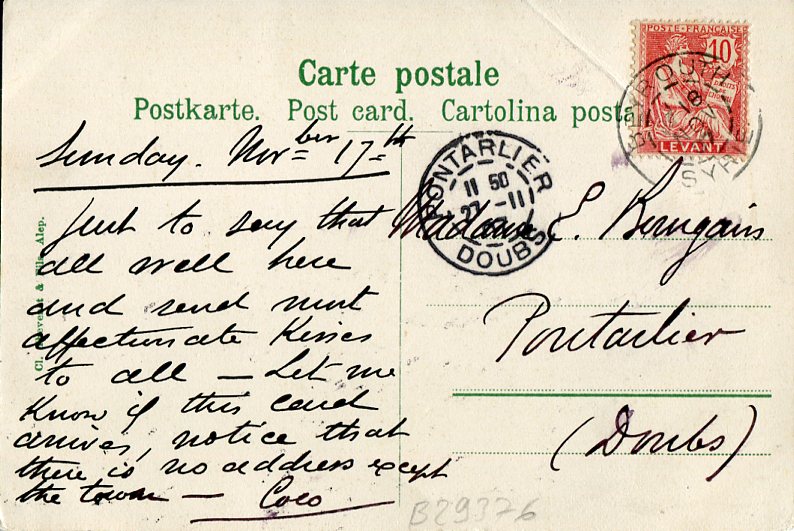 POSTE FRANÇAISE
10
LEVANT
BEYROUTH
SYRIE
Carte postale
Postkarte. Post card. Cartolina posta
PONTARLIER
11 50
27 -11
DOUBS
Sunday. Novber 17th
Just to say that
all well here
and send most
affectionate kisses
to all – Let me
know if this card
arrives, notice that
there is no address except
the town – Coco
Madame E.
Pontarlier
(Doubs)
& Fils, Alep.
B29376